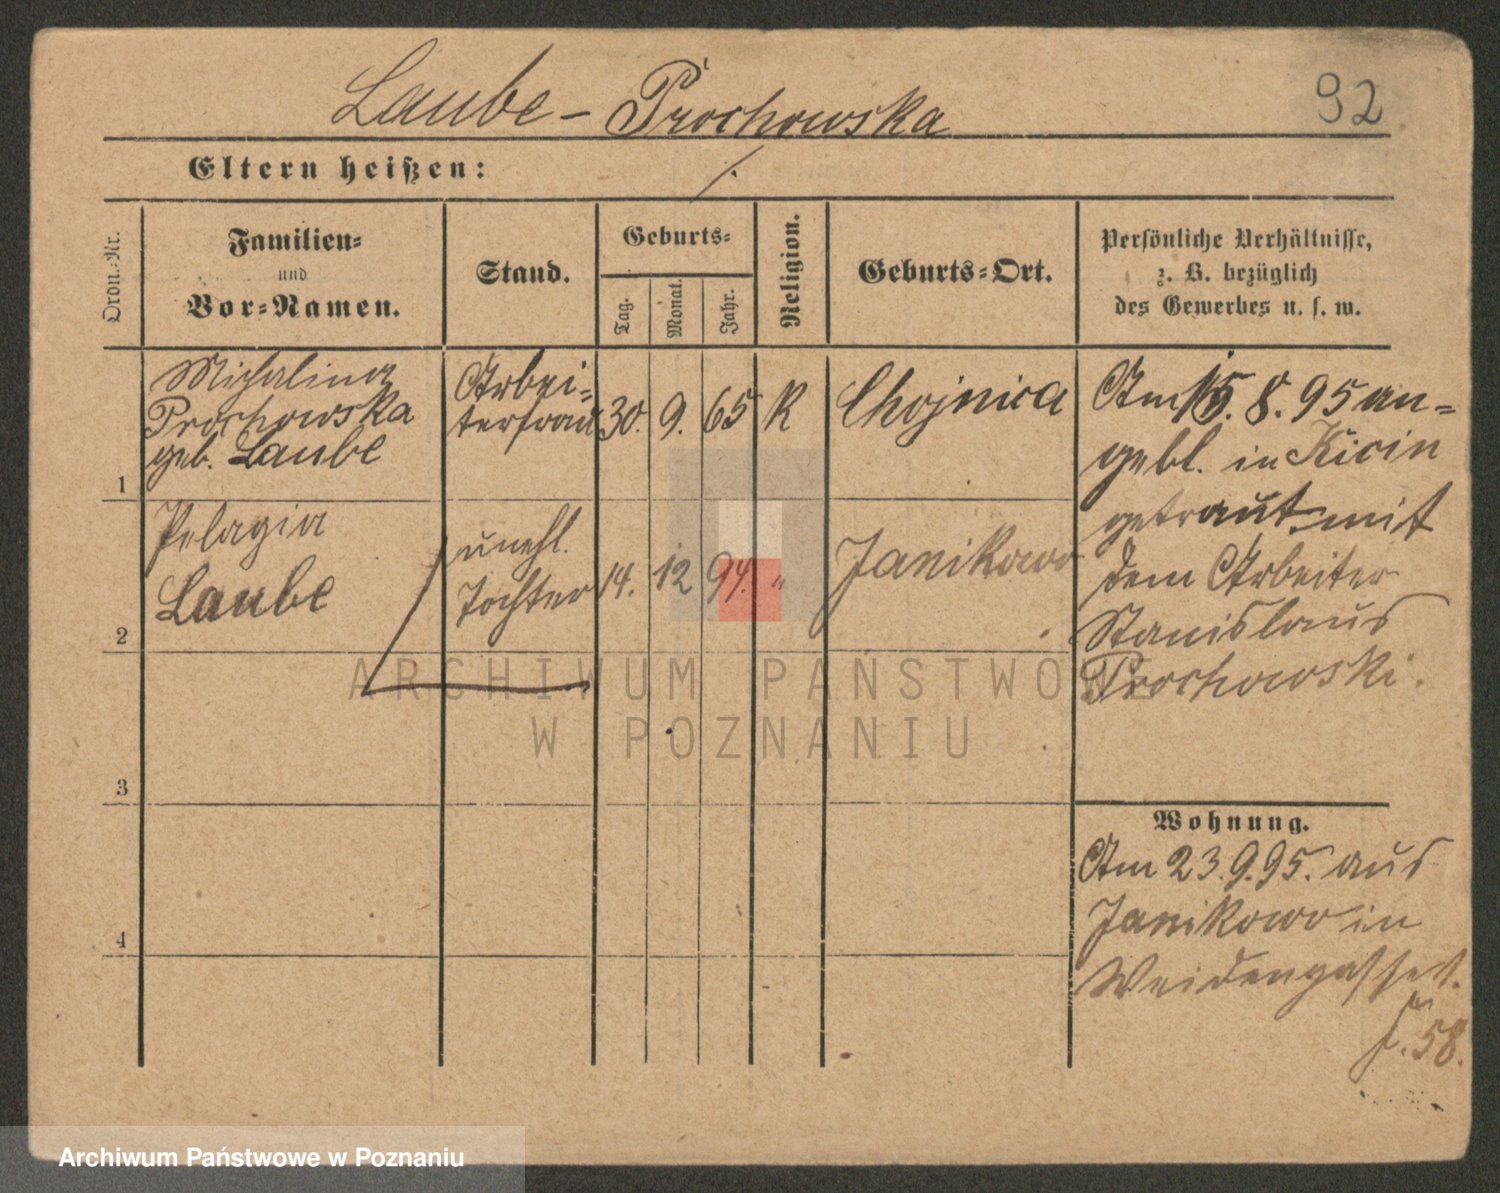 Laube - Prochowska
92
Eltern heißen: /.
Ordn.-Nr.
Familien-
und
Vor-Namen.
Stand.
Geburts-
Tag.
Monat.
Jahr.
Religion.
Geburts-Ort.
Persönliche Verhältnisse,
z. B. bezüglich
des Gewerbes u. s. w.
1
Michalina
Prochowska
geb. Laube
Arbei-
terfrau
30. 9. 65 K Chojnica
Am 15. 8. 95 an-
gebl. in Kicin
getraut mit
dem Arbeiter
Stanislaus
Prochowski.
2
Pelagia
Laube
unehl.
Tochter
14. 12 94. " Janikowo
3
4
Wohnung.
Am 23.9.95. aus
Janikowo in
Weidengasse
58.
ARCHIWUM PAŃSTWOWE
W POZNANIU
Archiwum Państwowe w Poznaniu